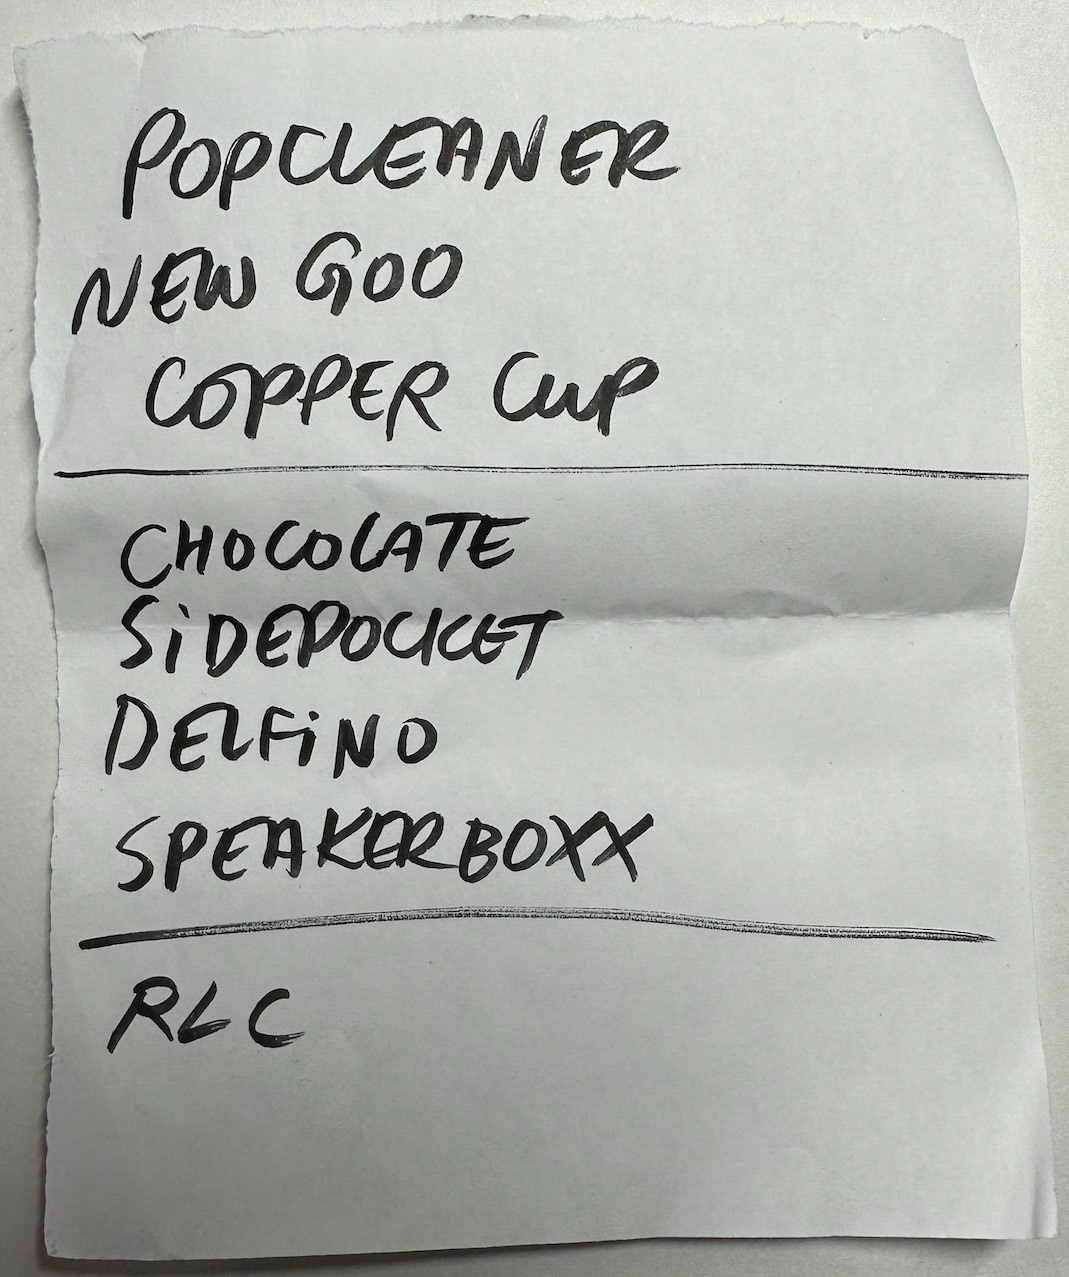 POPCLEANER
NEW GOO
COPPER CUP
CHOCOLATE
SiDEPOCKET
DELFiNO
SPEAKERBOXX
RLC